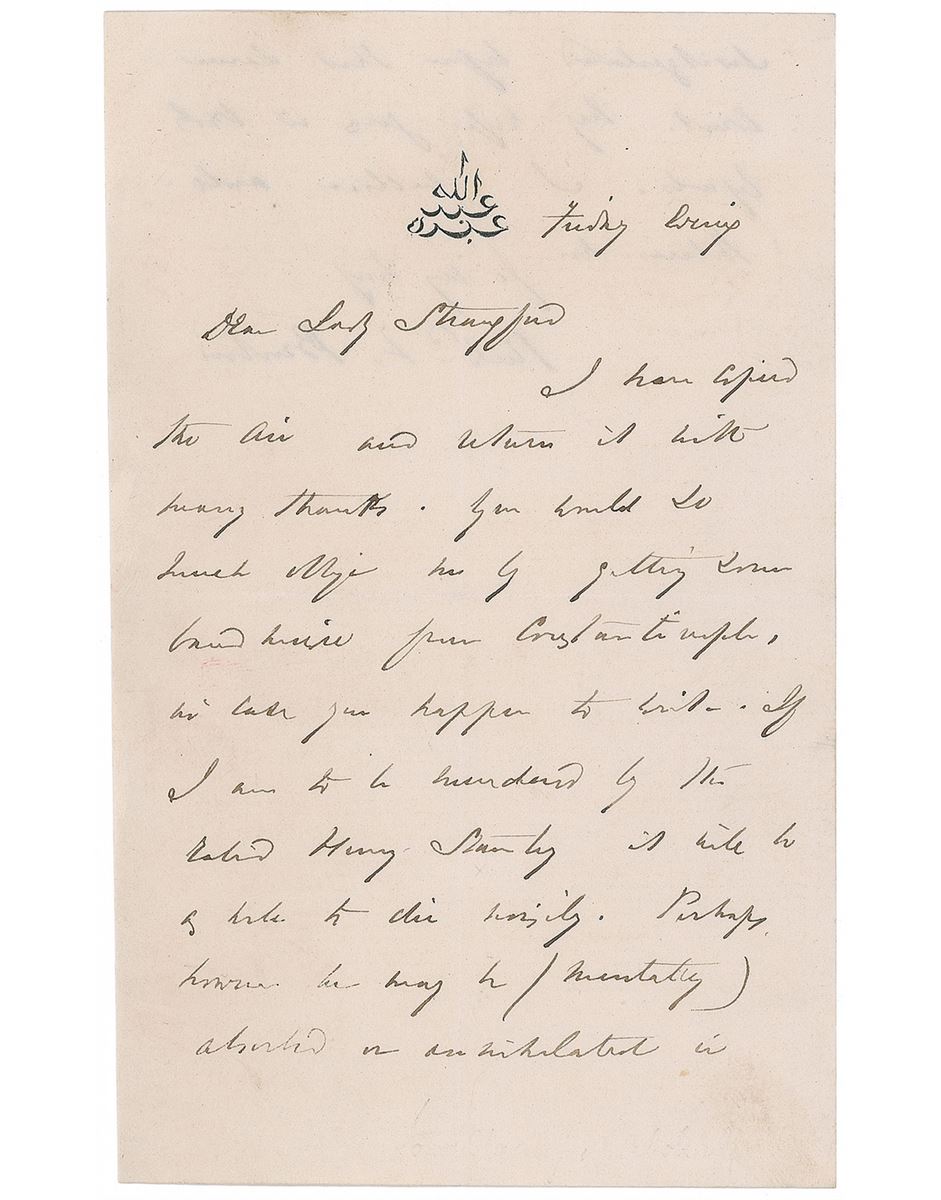 عبده
عبد
الله
Friday Evening
Dear Lady Strangford
I have copied
the air and return it with
many thanks. You would do
much oblige me by getting some
band music from Constantinople,
in case you happen to write. If
I am to be murdered by the
rabid Henry Stanley it will be
as well to die noisily. Perhaps
however he may be (mentally)
absorbed or annihilated in